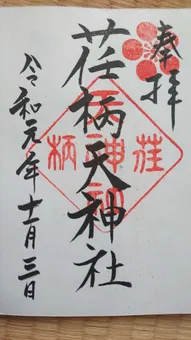 奉拝
荏柄天神社
令和元年十一月三日
荏柄天神社